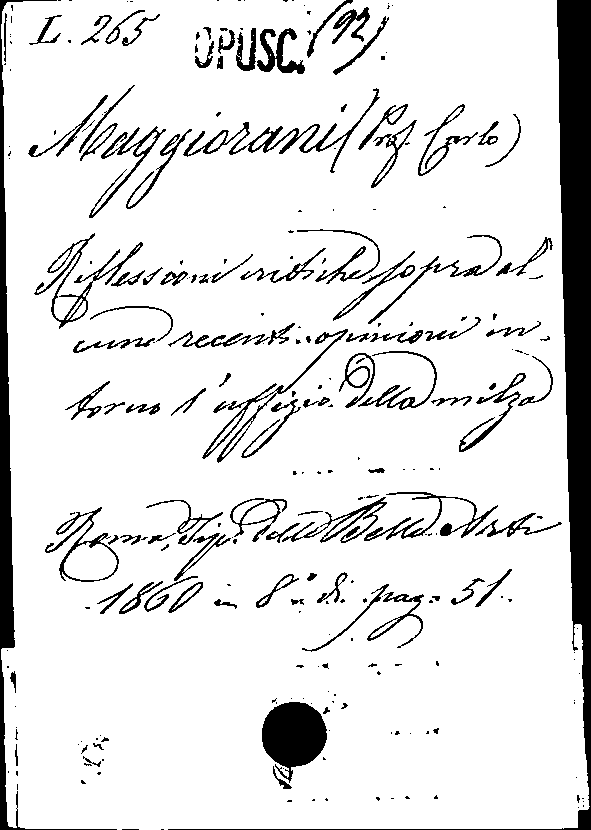 L. 265 OPUSC. (92).
Maggiorani (Prof. Carlo)
Riflessioni critiche sopra al-
cune recenti opinioni in-
torno l'uffizio della milza
Roma, Tip. delle Belle Arti
1860 in 8.° di pag. 51.